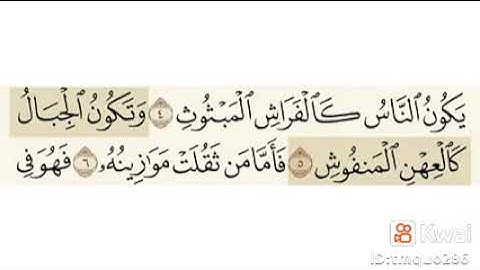 يَكُونُ ٱلنَّاسُ كَٱلْفَرَاشِ ٱلْمَبْثُوثِ ٤ وَتَكُونُ ٱلْجِبَالُ
كَٱلْعِهْنِ ٱلْمَنفُوشِ ٥ فَأَمَّا مَن ثَقُلَتْ مَوَٰزِينُهُۥ ٦ فَهُوَ فِى
Kwai
ID:tmq_o286